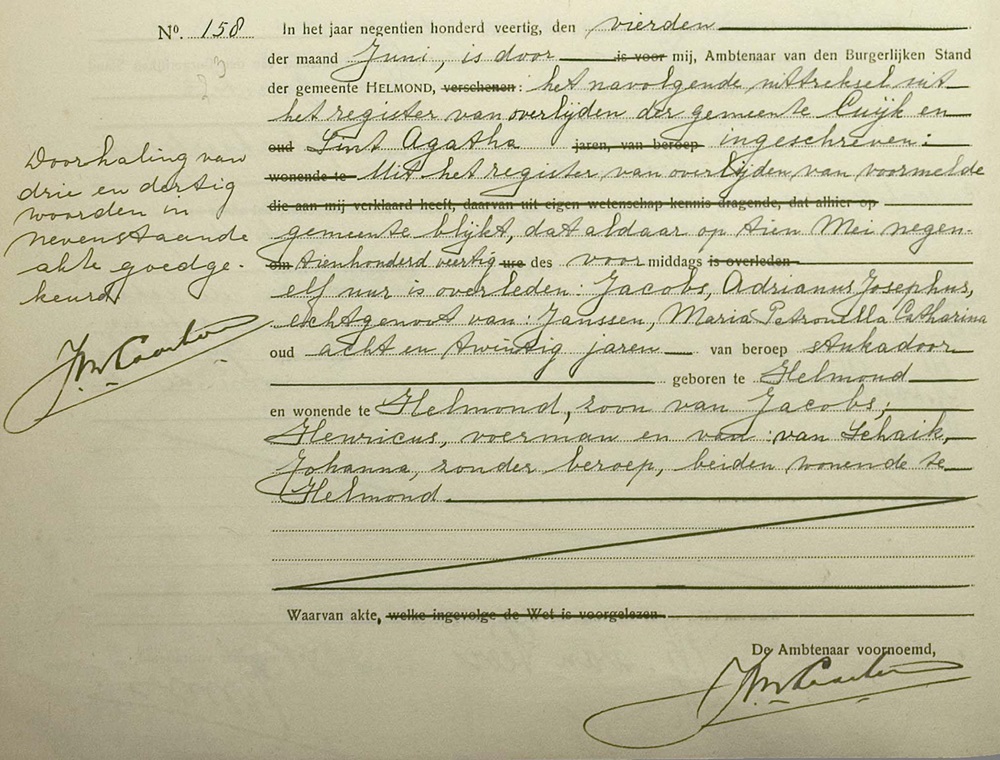 Nº. 158 In het jaar negentien honderd veertig, den vierden
der maand Juni, is door is voor mij, Ambtenaar van den Burgerlijken Stand
der gemeente HELMOND, verschenen: het navolgende uittreksel uit
het register van overlijden der gemeente Cuijk en
oud Sint Agatha jaren, van beroep ingeschreven:
wonende te Uit het register van overlijden van voormelde
die aan mij verklaard heeft, daarvan uit eigen wetenschap kennis dragende, dat alhier op
gemeente blijkt, dat aldaar op tien Mei negen-
om tienhonderd veertig ure des voormiddags is overleden
elf uur is overleden: Jacobs, Adrianus Josephus,
echtgenoot van: Janssen, Maria Petronella Catharina
oud acht en twintig jaren van beroep stukadoor
geboren te Helmond
en wonende te Helmond, zoon van Jacobs,
Henricus, voerman en van: van Schaik,
Johanna, zonder beroep, beiden wonende te
Helmond
Waarvan akte, welke ingevolge de Wet is voorgelezen
De Ambtenaar voornoemd,
Doorhaling van
drie en dertig
woorden in
nevenstaande
akte goedge-
keurd.